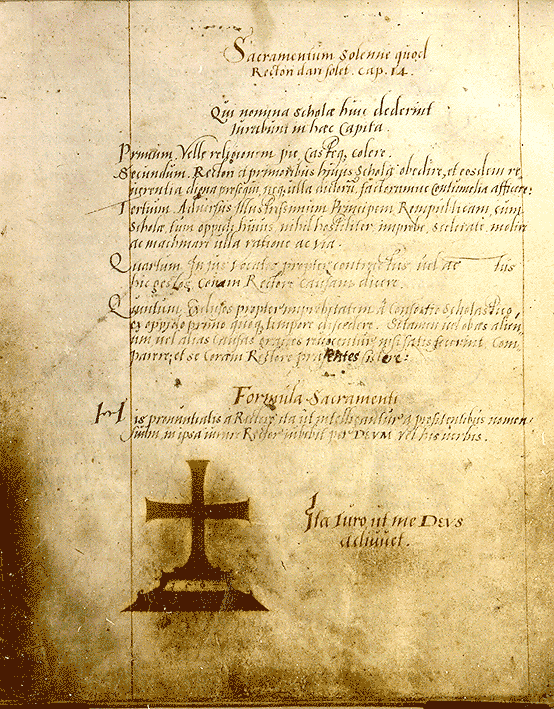 Sacramentum Solenne quod
Rectori dari solet. Cap. 14.
Qui nomina Scholae huic dederint
Iurabunt in haec Capita.
Primum. Velle religionem pie, Casteq. colere.
Secundum. Rectori et primoribus hujus Scholae obedire, et eosdem re
verentia digna prosequi, neq. ulla dictorum, factorumue Contumelia afficere.
Tertium. Adversus Illustrissimum Principem, Rempublicam, cum
Scholae, tum oppidi huius, nihil hostiliter, improbe, scelerate, moliri
ac machinari ulla ratione ac via.
Quartum. In jus Vocatos propter contractus, vel ac
hic gestos, Coram Rectore Causam dicere.
Quintum. Exclusos propter improbitatem à Consortio Scholastico,
ex oppido primo quoq. tempore discedere. Si tamen vel ob aes alien
um vel alias Causas graves revocentur, nisi satis fecerint, Com
parere, et se Coram Rectore praesentes sistere.
Formula Sacramenti
His pronuntiatis a Rectore, ita ut intelligantur a profitentibus nomen
suum, in ipsa iurare Rector iubebit per DEVM vel his verbis.
I
Ita Iuro, ut me DEVS
adiuvet.